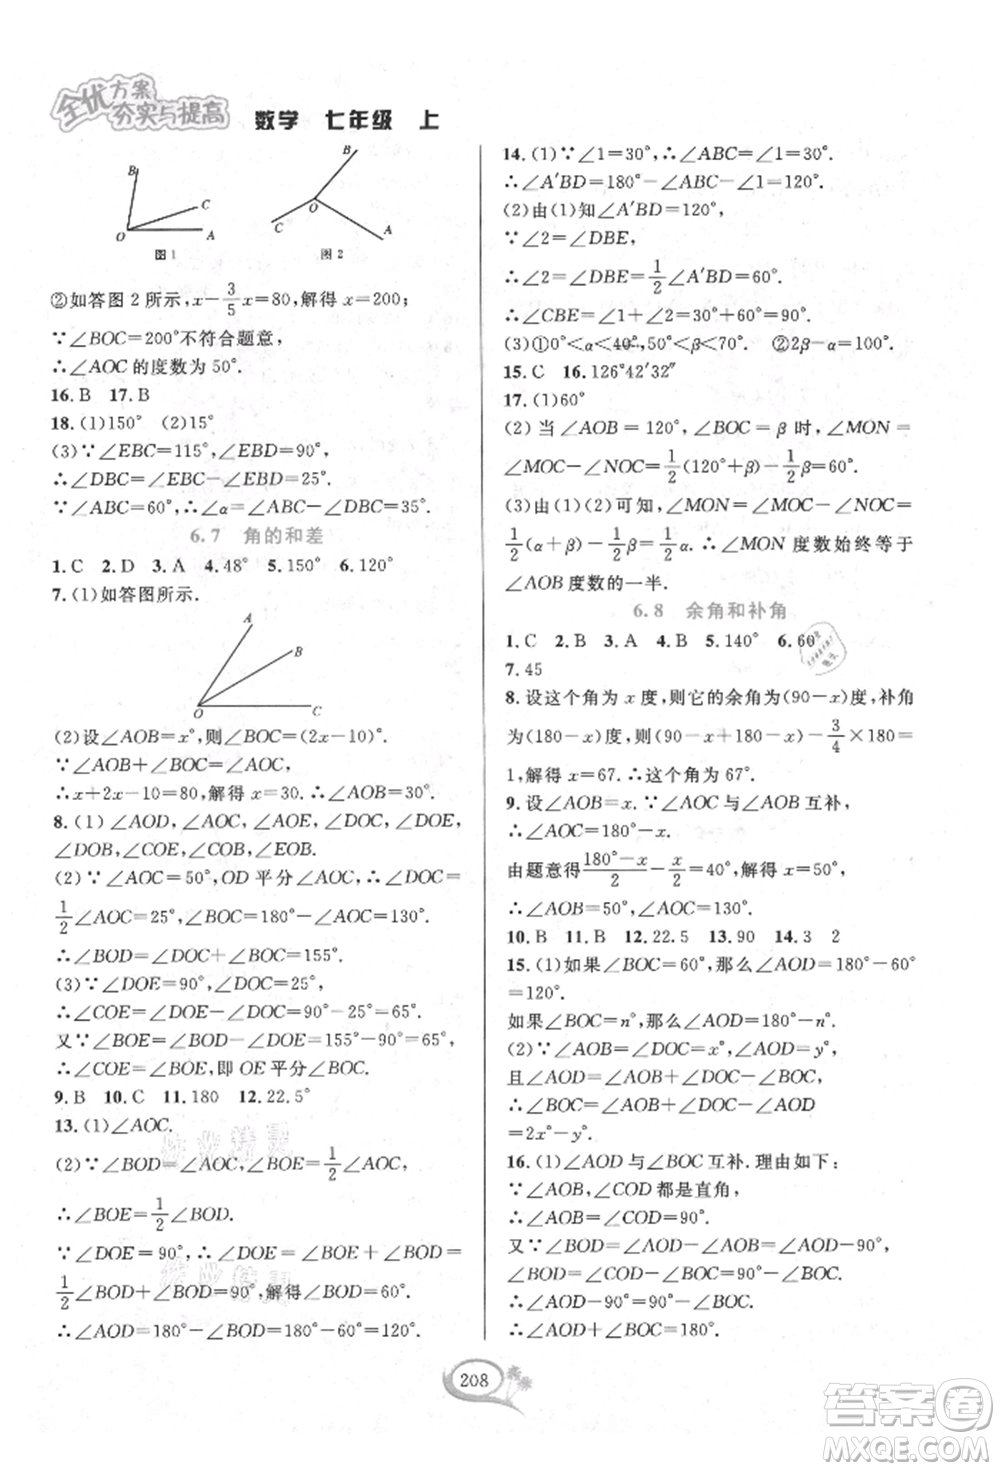 全优方案
夯实与提高
数学 七年级 上
B
C
O
A
图1
B
O
C
A
图2
②如答图2所示,x-3/5x=80,解得x=200;
∵∠BOC=200°不符合题意,
∴∠AOC的度数为50°.
16.B 17.B
18.(1)150° (2)15°
(3)∵∠EBC=115°,∠EBD=90°,
∴∠DBC=∠EBC-∠EBD=25°.
∵∠ABC=60°,∴∠α=∠ABC-∠DBC=35°.
6.7 角的和差
1.C 2.D 3.A 4.48° 5.130° 6.120°
7.(1)如答图所示.
A
B
O
C
(2)设∠AOB=x°,则∠BOC=(2x-10)°.
∵∠AOB+∠BOC=∠AOC,
∴x+2x-10=80,解得x=30.∴∠AOB=30°.
8.(1)∠AOD,∠AOC,∠AOE,∠DOC,∠DOE,
∠DOB,∠COE,∠COB,∠EOB.
(2)∵∠AOC=50°,OD平分∠AOC,∴∠DOC=
1/2∠AOC=25°,∠BOC=180°-∠AOC=130°.
∴∠BOD=∠DOC+∠BOC=155°.
(3)∵∠DOE=90°,∠DOC=25°,
∴∠COE=∠DOE-∠DOC=90°-25°=65°.
又∵∠BOE=∠BOD-∠DOE=155°-90°=65°.
∴∠COE=∠BOE,即OE平分∠BOC.
9.B 10.C 11.180 12.22.5°
13.(1)∠AOC.
(2)∵∠BOD=∠AOC,∠BOE=1/2∠AOC,
∴∠BOE=1/2∠BOD.
∵∠DOE=90°,∴∠DOE=∠BOE+∠BOD=
1/2∠BOD+∠BOD=90°,解得∠BOD=60°.
∴∠AOD=180°-∠BOD=180°-60°=120°.
14.(1)∵∠1=30°,∴∠ABC=∠1=30°.
∴∠A′BD=180°-∠ABC-∠1=120°.
(2)由(1)知∠A′BD=120°,
∵∠2=∠DBE,
∴∠2=∠DBE=1/2∠A′BD=60°.
∴∠CBE=∠1+∠2=30°+60°=90°.
(3)①0°<α<40°,50°<β<70°. ②2β-α=100°.
15.C 16.126°42′32″
17.(1)60°
(2)当∠AOB=120°,∠BOC=β时,∠MON=
∠MOC-∠NOC=1/2(120°+β)-1/2β=60°.
(3)由(1)(2)可知,∠MON=∠MOC-∠NOC=
1/2(α+β)-1/2β=1/2α.∴∠MON度数始终等于
∠AOB度数的一半.
6.8 余角和补角
1.C 2.B 3.A 4.B 5.140° 6.60
7.45
8.设这个角为x度,则它的余角为(90-x)度,补角
为(180-x)度,则(90-x+180-x)-3/4×180=
1,解得x=67.∴这个角为67°.
9.设∠AOB=x.∵∠AOC与∠AOB互补,
∴∠AOC=180°-x.
由题意得(180°-x)/2-x/2=40°,解得x=50°.
∴∠AOB=50°,∠AOC=130°.
10.B 11.B 12.22.5 13.90 14.3 2
15.(1)如果∠BOC=60°,那么∠AOD=180°-60°
=120°.
如果∠BOC=n°,那么∠AOD=180°-n°.
(2)∵∠AOB=∠DOC=x°,∠AOD=y°,
且∠AOD=∠AOB+∠DOC-∠BOC,
∴∠BOC=∠AOB+∠DOC-∠AOD=
2x°-y°.
16.(1)∠AOD与∠BOC互补.理由如下:
∵∠AOB,∠COD都是直角,
∴∠AOB=∠COD=90°.
又∵∠BOD=∠AOD-∠AOB=∠AOD-90°,
∠BOD=∠COD-∠BOC=90°-∠BOC,
∴∠AOD-90°=90°-∠BOC.
∴∠AOD+∠BOC=180°.
208
答案卷
MXQE.COM